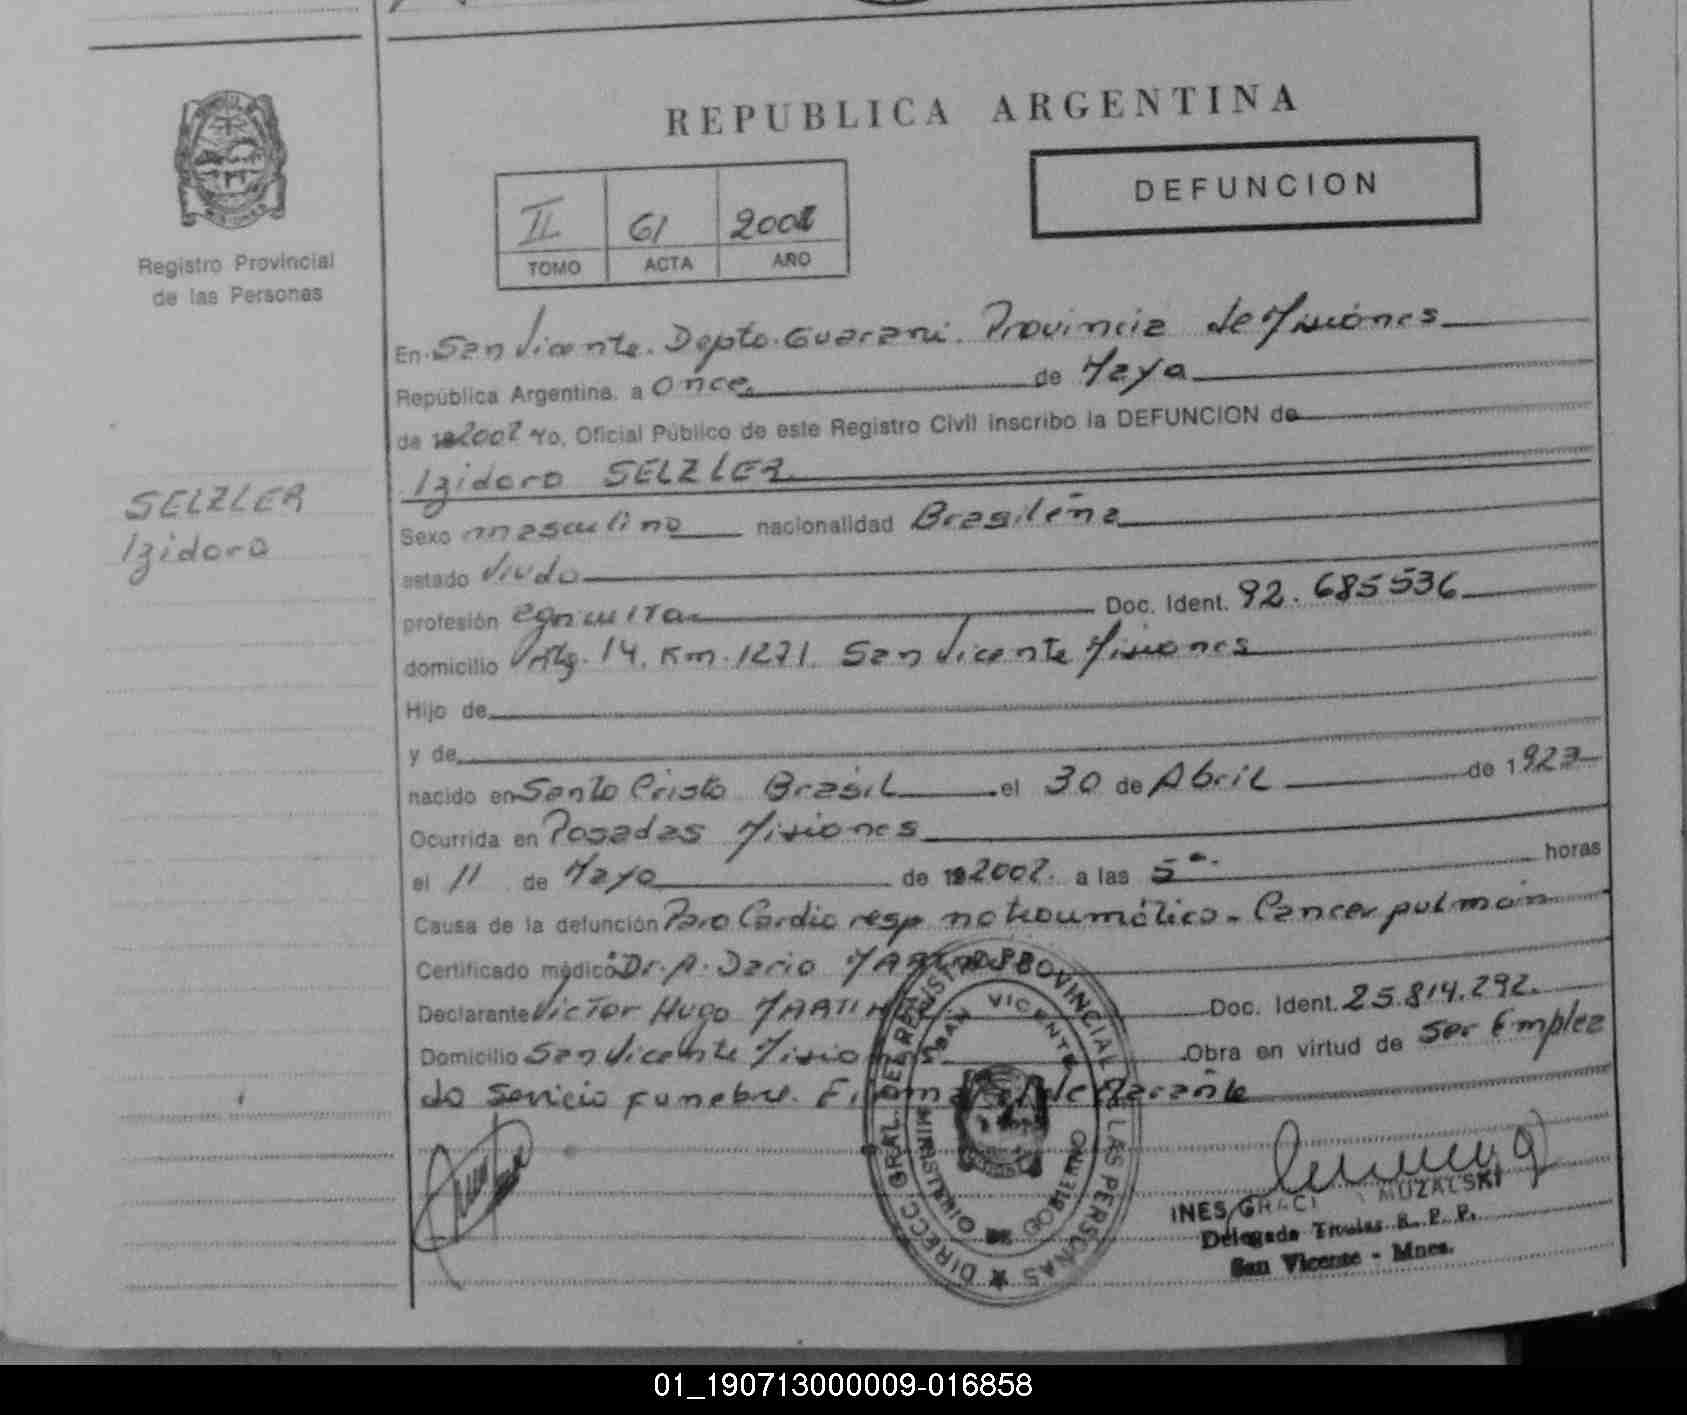 REPUBLICA ARGENTINA
DEFUNCION
II 61 2002
TOMO ACTA AÑO
Registro Provincial
de las Personas
En San Vicente. Depto. Guarani. Provincia de Misiones
República Argentina, a Once de Mayo
de 2002 Yo, Oficial Público de este Registro Civil inscribo la DEFUNCION de
Izidoro SELZLER
SELZLER
Izidoro
Sexo masculino nacionalidad Brasileña
estado Viudo
profesión Doc. Ident. 92.685536
domicilio 14. Km. 1271. San Vicente Misiones
Hijo de
y de
nacido en Santo Cristo Brasil el 30 de Abril de 1923
Ocurrida en Posadas Misiones
el 11 de Mayo de 2002. a las 5 horas
Causa de la defunción Paro Cardio resp no traumático - Cancer pulmón
Certificado médico Dr. A. Dario
Declarante Victor Hugo Doc. Ident. 25.814.292.
Domicilio San Vicente Obra en virtud de Ser Emplea
do Servicio funebre.
DIRECC. GRAL. DEL REGISTRO PROVINCIAL DE LAS PERSONAS
SAN VICENTE
MINISTERIO DE GOBIERNO
INES GRACI MUZALSKI
Delegada R. P. P.
San Vicente - Mnes.
01_190713000009-016858